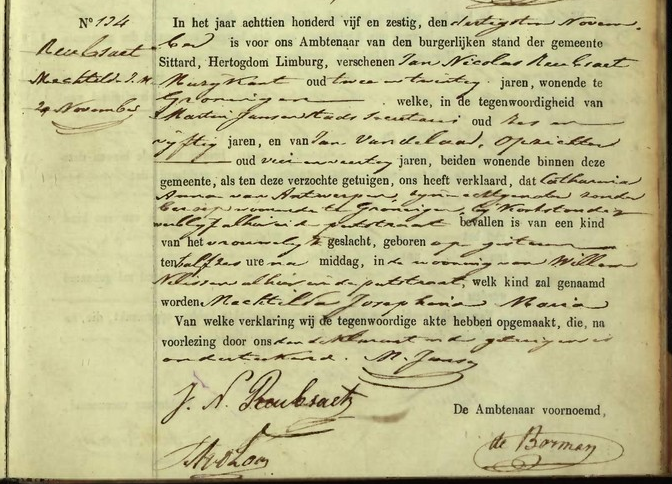 N° 134
Reubsaet
Mechtilda J. M.
29 November
In het jaar achttien honderd vijf en zestig, den dertigsten Novem-
ber is voor ons Ambtenaar van den burgerlijken stand der gemeente
Sittard, Hertogdom Limburg, verschenen Jan Nicolas Reubsaet
Muzykant oud twee en twintig jaren, wonende te
Groningen welke, in de tegenwoordigheid van
Martin Jansen Stads Secretaris oud zes en
vyftig jaren, en van Jan Van de Loo, Opzichter
oud vier en veertig jaren, beiden wonende binnen deze
gemeente, als ten deze verzochte getuigen, ons heeft verklaard, dat Catharina
Anna van Antwerpen, zyne echtgenote zonder
beroep wonende te Groningen, by kortstondig
verblyf alhier in de putstraat bevallen is van een kind
van het vrouwelyk geslacht, geboren op gisteren
ten half zes ure na middag, in de woning van Willem
Nelissen alhier in de putstraat, welk kind zal genaamd
worden Mechtilda Josephina Maria
Van welke verklaring wij de tegenwoordige akte hebben opgemaakt, die, na
voorlezing door ons den deklarant en de getuigen is
onderteekend. M. Jansen
J. N. Reubsaet
De Ambtenaar voornoemd,
de Borman